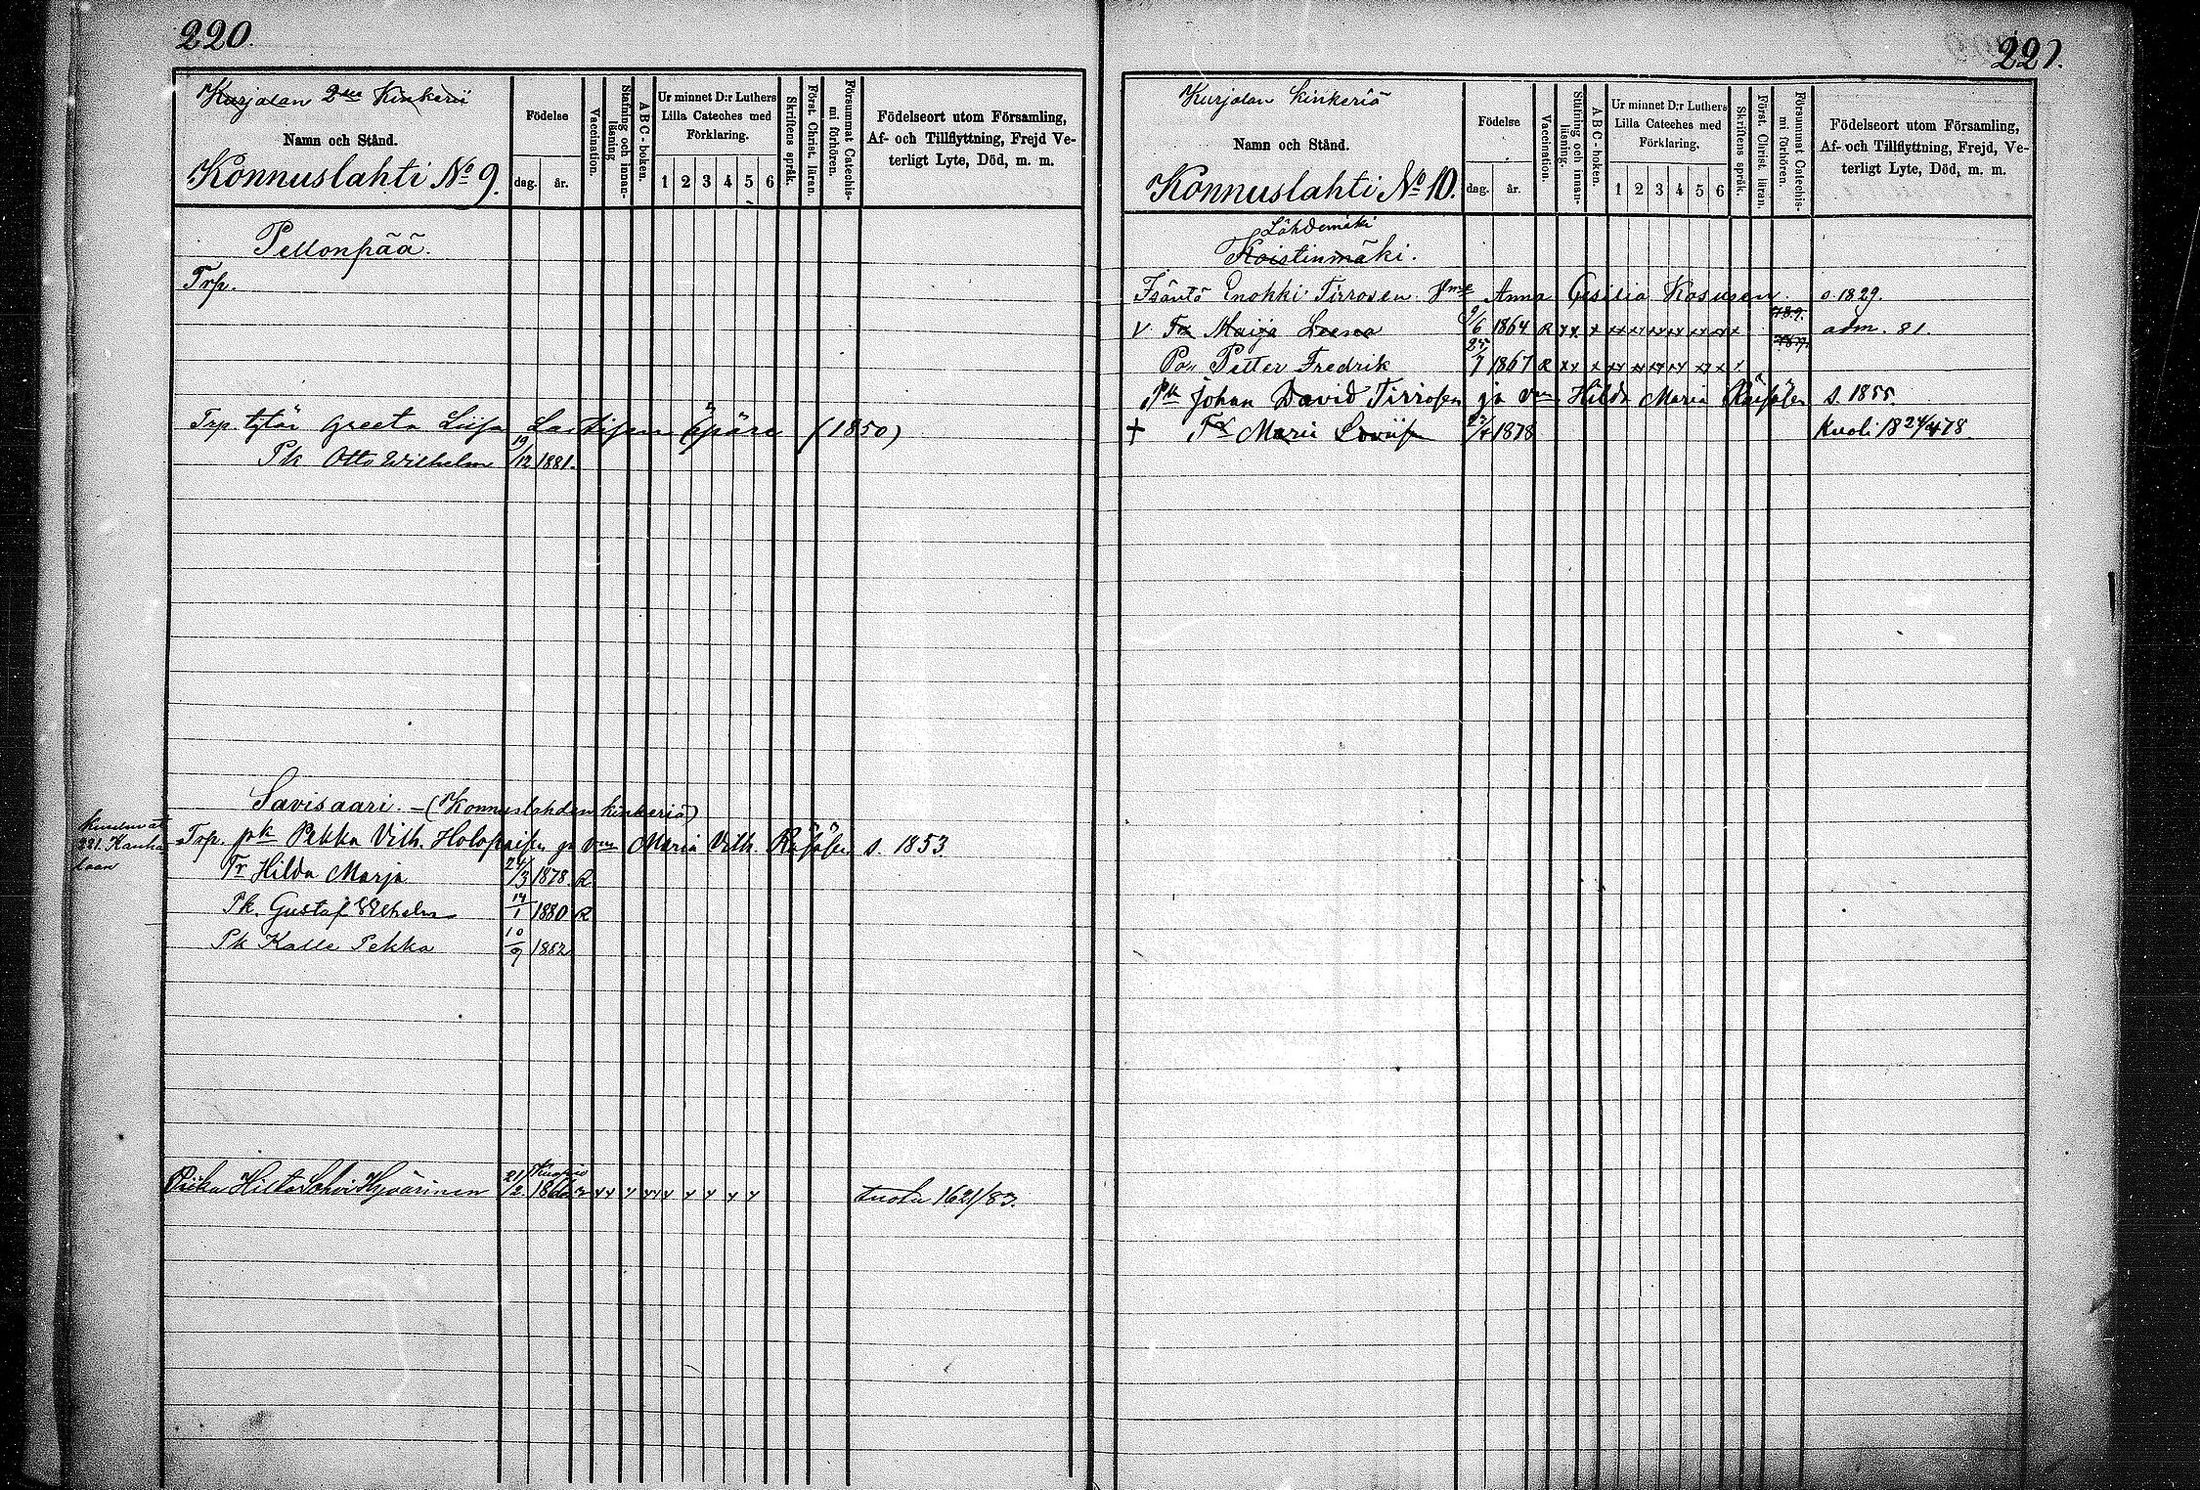 220.
Kurjalan 2en Kinkeriä
Namn och Stånd.
Konnuslahti No 9.
Födelse
dag. år.
Vaccination.
Stafning och innan-läsning
ABC-boken.
Ur minnet D:r Luthers
Lilla Cateches med
Förklaring.
1 2 3 4 5 6
Skriftens språk.
Först. Christ. läran.
Försummat Catechis-
mi förhören.
Födelseort utom Församling,
Af- och Tillflyttning, Frejd Ve-
terligt Lyte, Död, m. m.
Pellonpää.
Trp.
Trp. tytär Greeta Liisa Äpäre (1850)
Pk Otto Wilhelm 19/12 1881.
Savisaari. - (Konnuslahden kinkeriä)
Trp. pk Pekka Vilh. Holopaisen ja vmo Maria Vilh. Räsäsen s. 1853.
221. Kanka
laan
Tr Hilda Marja 24/3 1878. R
Pk. Gustaf Vilhelm 14/1 1880 R
Pk Kalle Pekka 10/9 1882
Piika Hilta Sohvi Hyvärinen 21/2 Kuopio
tuolu 1621/83.
221.
Kurjalan kinkeriä
Namn och Stånd.
Konnuslahti No 10.
Födelse
dag. år.
Vaccination.
Stafning och innan-
läsning.
ABC-boken.
Ur minnet D:r Luthers
Lilla Cateches med
Förklaring.
1 2 3 4 5 6
Skriftens språk.
Först. Christ. läran.
Försummat Catechis-
mi förhören.
Födelseort utom Församling,
Af- och Tillflyttning, Frejd, Ve-
terligt Lyte, Död, m. m.
Lähdemäki
Koistinmäki.
Isäntä Enokki Tirrosen Anna Cesilia Kosunen s. 1829.
V Tr Maija Leena 9/6 1864 R xx x xx xx xx xx xx xx x adm. 81.
Po. Petter Fredrik 25/7 1867 R xx x xx xx xx xx xx x x
Pk Johan David Tirrosen ja vmo Hilda Maria Räisäsen s. 1855
+ Tr Maria Loviisa 1878 Kuoli 18 24/4 78.